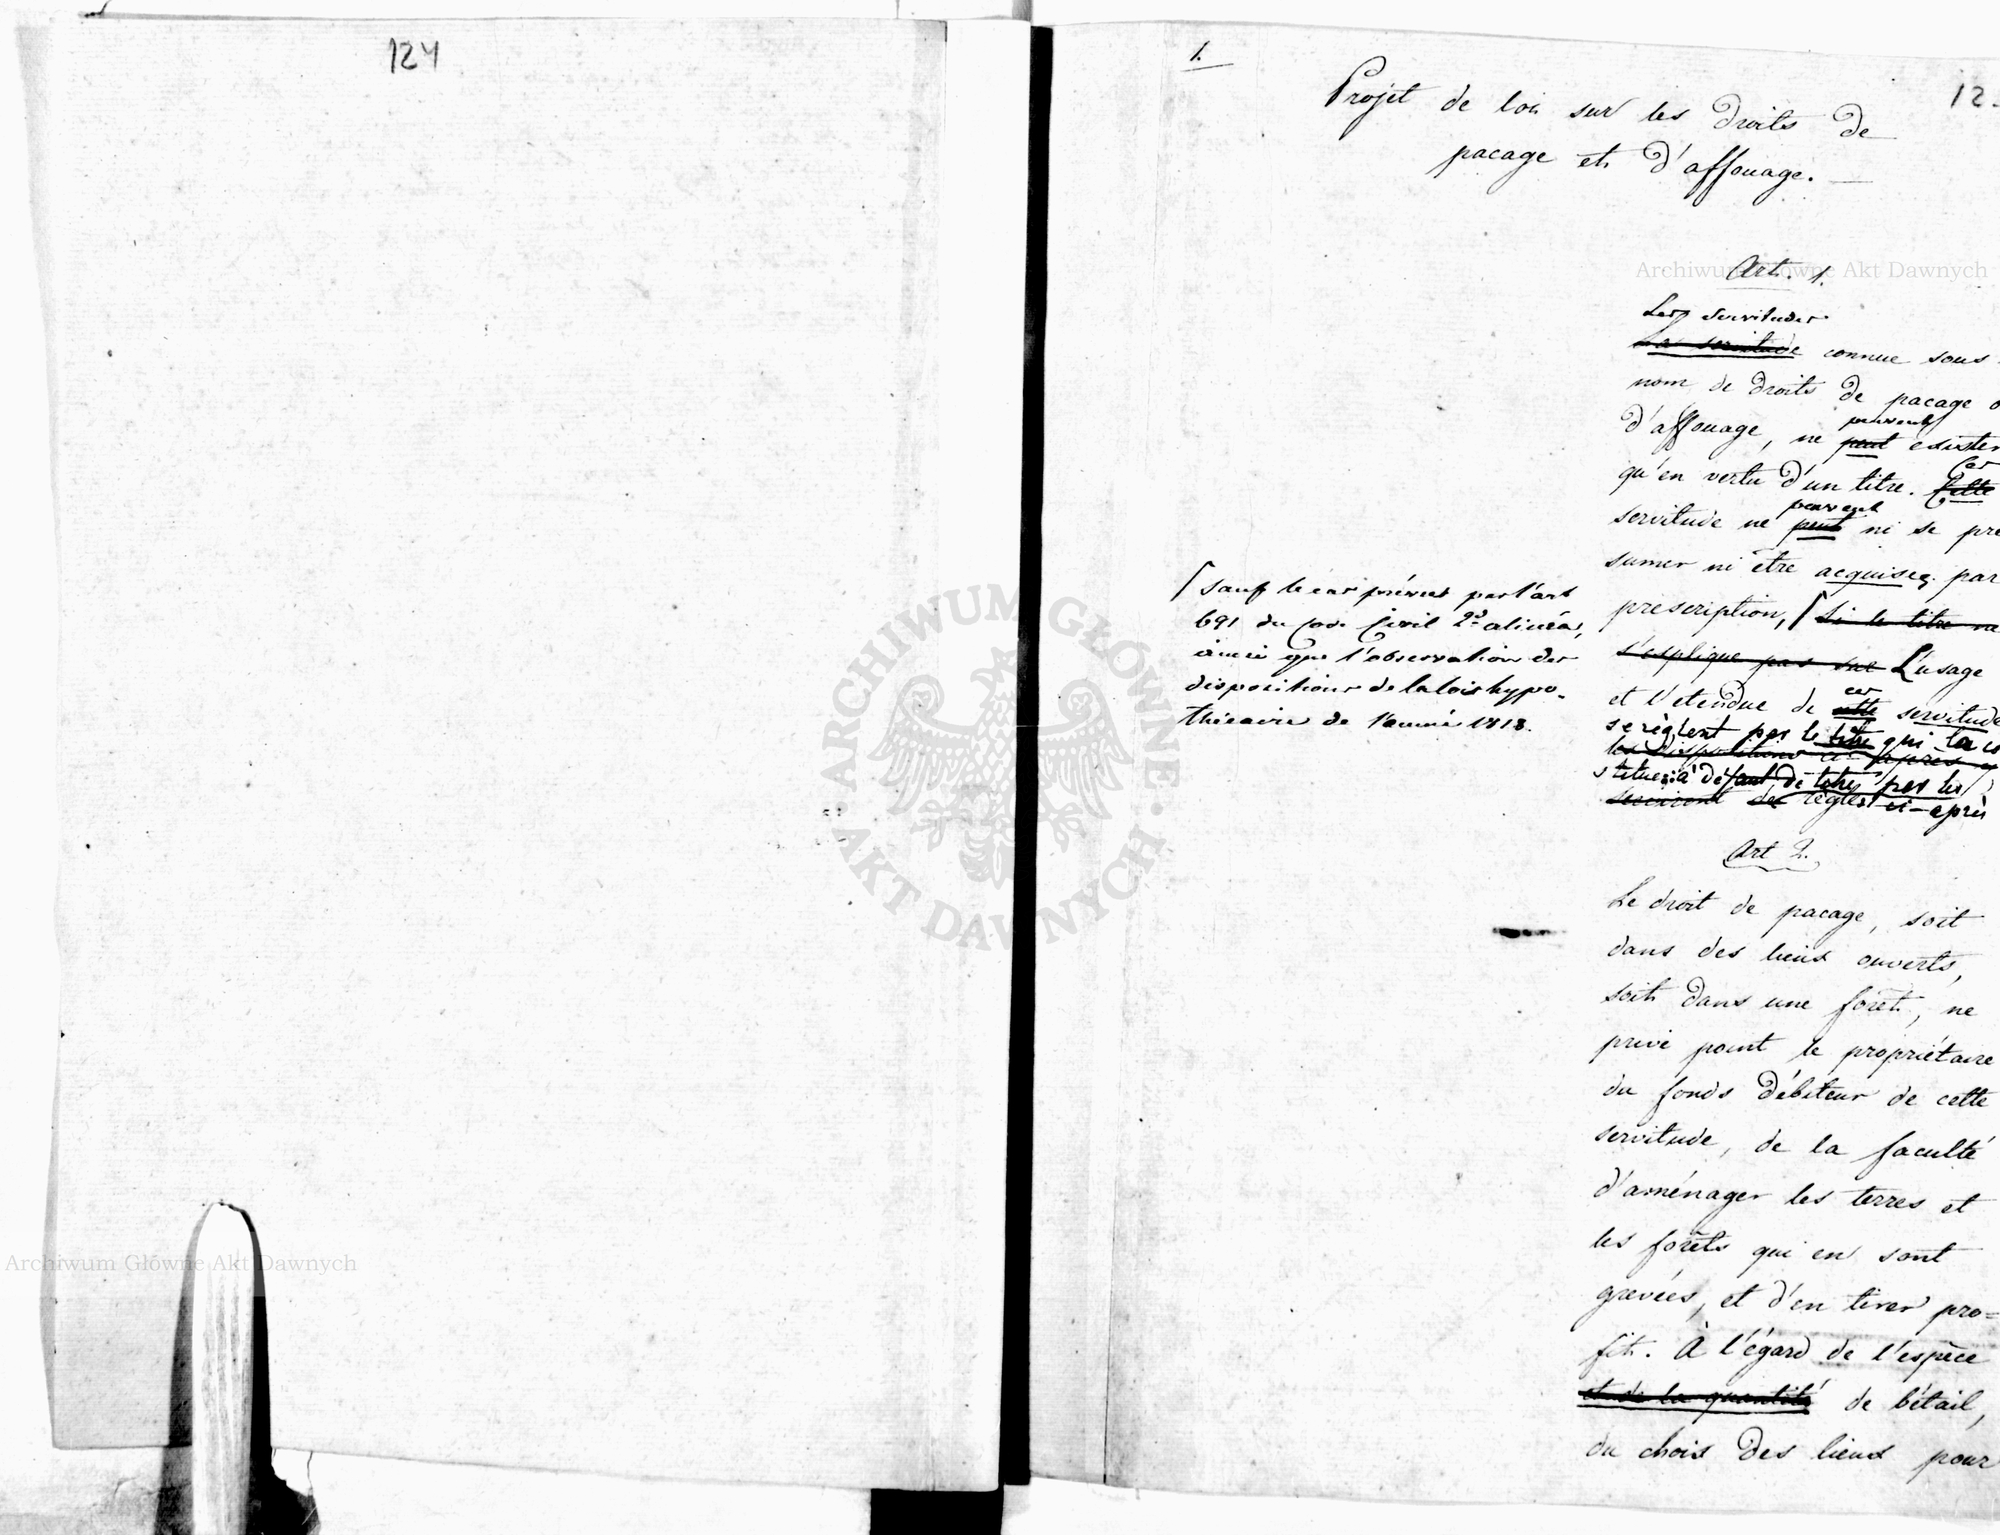 124
1.
12
Projet de loi sur les droits de
pacage et d'affouage. —
Art. 1.
Les servitudes
La servitude connue sous
nom de droits de pacage o
d'affouage, ne peuvent
peut exister
qu'en vertu d'un titre. Ces
Cette
servitude ne peuvent
peut ni se pré
sumer ni être acquises par
prescription, / si le titre ne
s'explique pas sur L'usage
et l'étendue de ces
cette servitude
se règlent par le titre qui la co
les dispositions ci-après
stitue; à défaut de titre par les
serviront de règles ci-après
/ sauf le cas prévus par l'art
691 du Code Civil 2d alinéa,
ainsi que l'observation des
dispositions de la loi hypo-
thécaire de l'année 1818.
Art 2.
Le droit de pacage, soit
dans des lieux ouverts,
soit dans une forêt, ne
prive point le propriétaire
du fonds débiteur de cette
servitude, de la faculté
d'aménager les terres et
les forêts qui en sont
grevées, et d'en tirer pro=
fit. À l'égard de l'espèce
et de la quantité de bétail,
du choix des lieux pour
Archiwum Główne Akt Dawnych
Archiwum Główne Akt Dawnych
ARCHIWUM GŁÓWNE AKT DAWNYCH